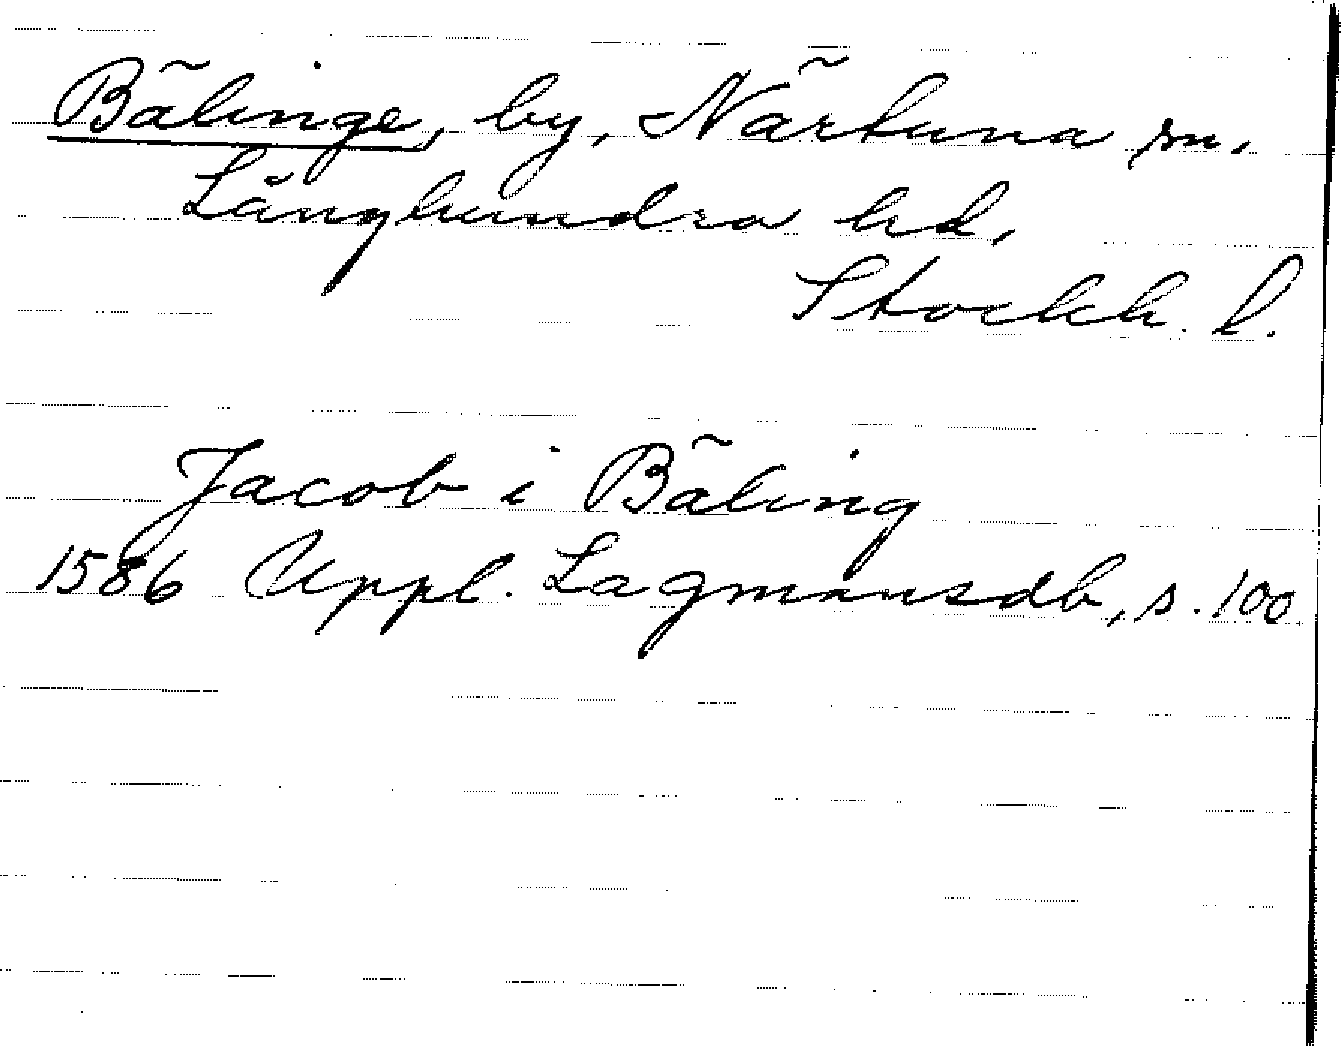 Bälinge, by, Närtuna sn.
Långhundra hd.
Stockh. l.
Jacob i Bäling
1586 Uppl. Lagmansdb, s. 100